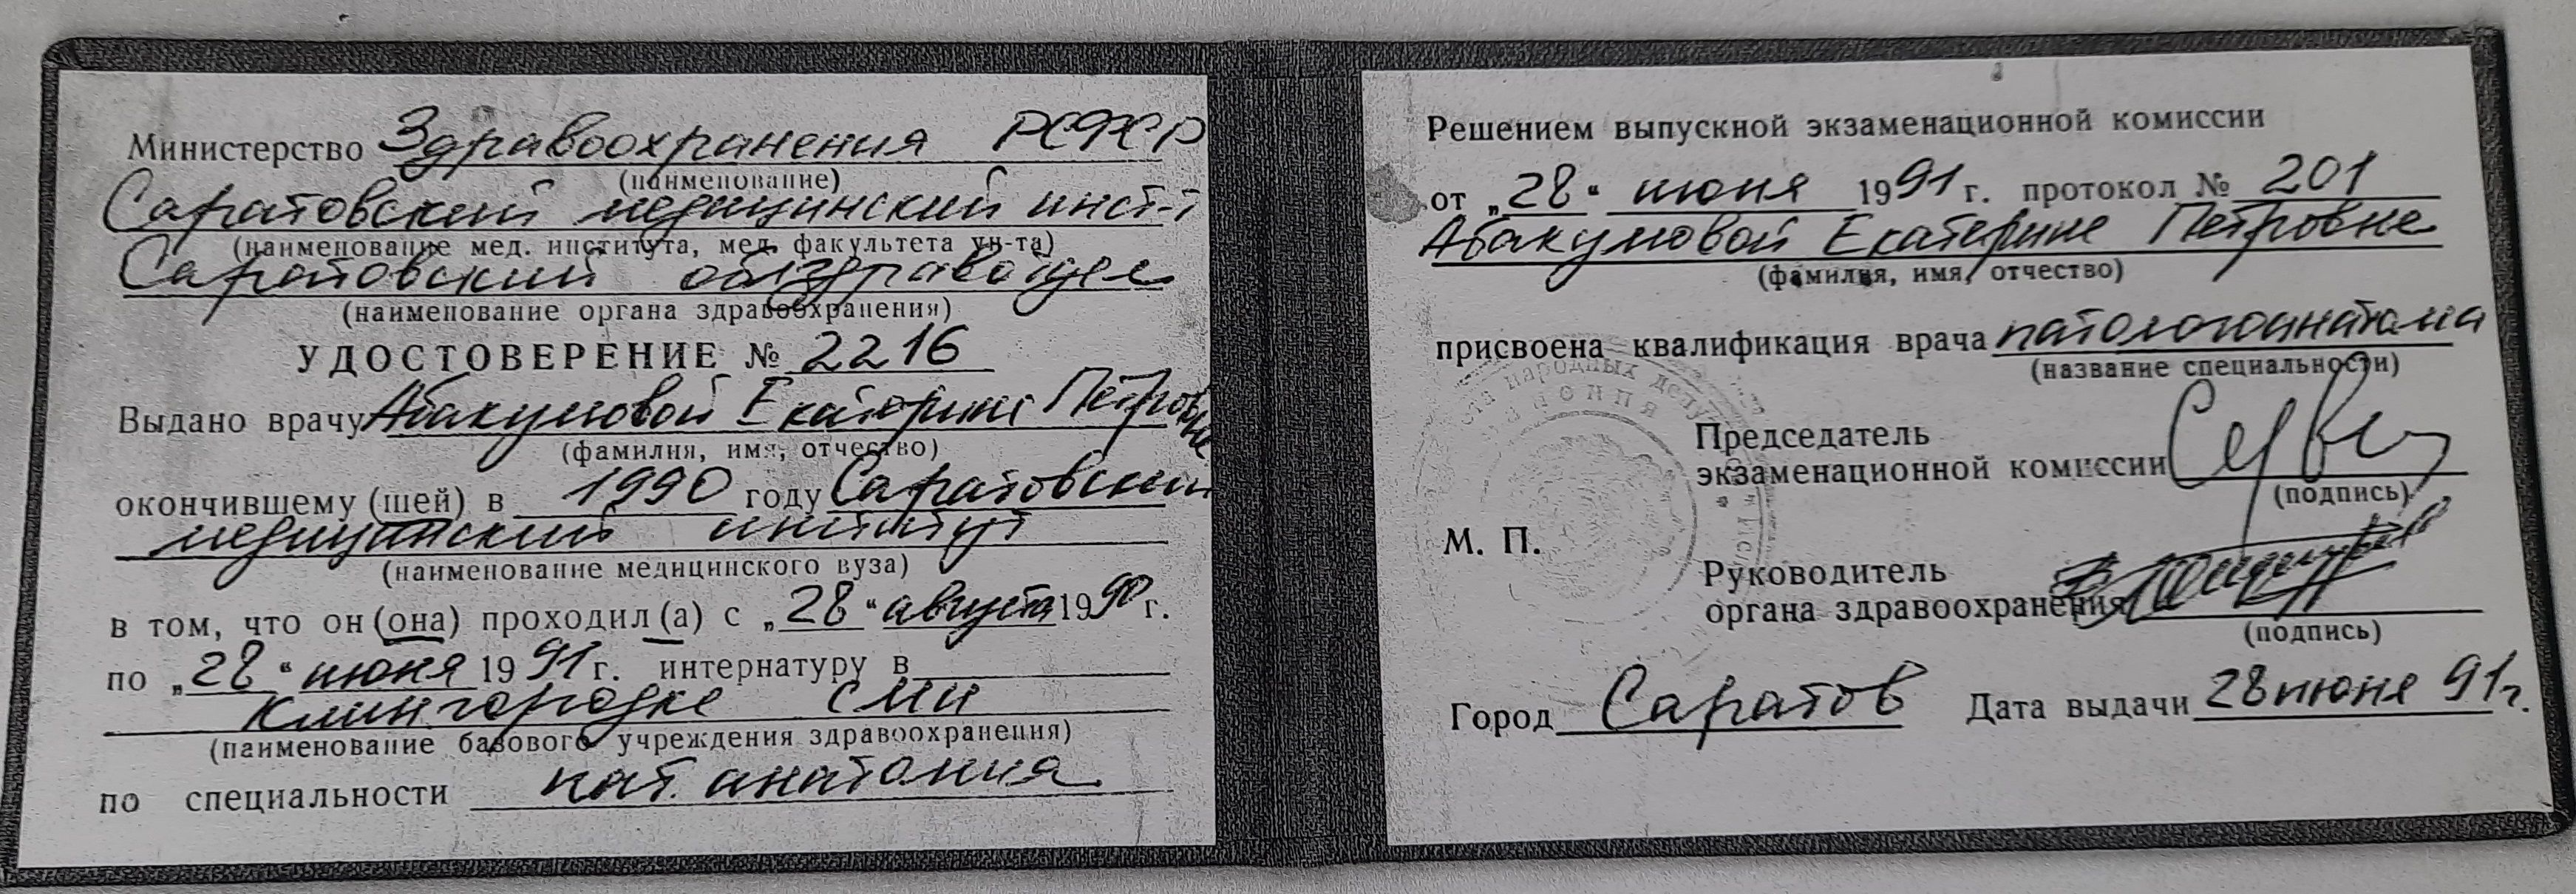 Министерство Здравоохранения РСФСР
(наименование)
Саратовский медицинский инст-т
(наименование мед. института, мед. факультета ун-та)
Саратовский облздравотдел
(наименование органа здравоохранения)
УДОСТОВЕРЕНИЕ № 2216
Выдано врачу Абакумовой Екатерине Петровне
(фамилия, имя, отчество)
окончившему (шей) в 1990 году Саратовский
медицинский институт
(наименование медицинского вуза)
в том, что он (она) проходил (а) с „28“ августа 1990 г.
по „28“ июня 1991 г. интернатуру в
Клингородке СМИ
(наименование базового учреждения здравоохранения)
по специальности пат. анатомия
Решением выпускной экзаменационной комиссии
от „28“ июня 1991 г. протокол № 201
Абакумовой Екатерине Петровне
(фамилия, имя, отчество)
присвоена квалификация врача патологоанатома
(название специальности)
народных депу
Председатель
экзаменационной комиссии
(подпись)
М. П.
Руководитель
органа здравоохранения
(подпись)
Город Саратов Дата выдачи 28 июне 91г.